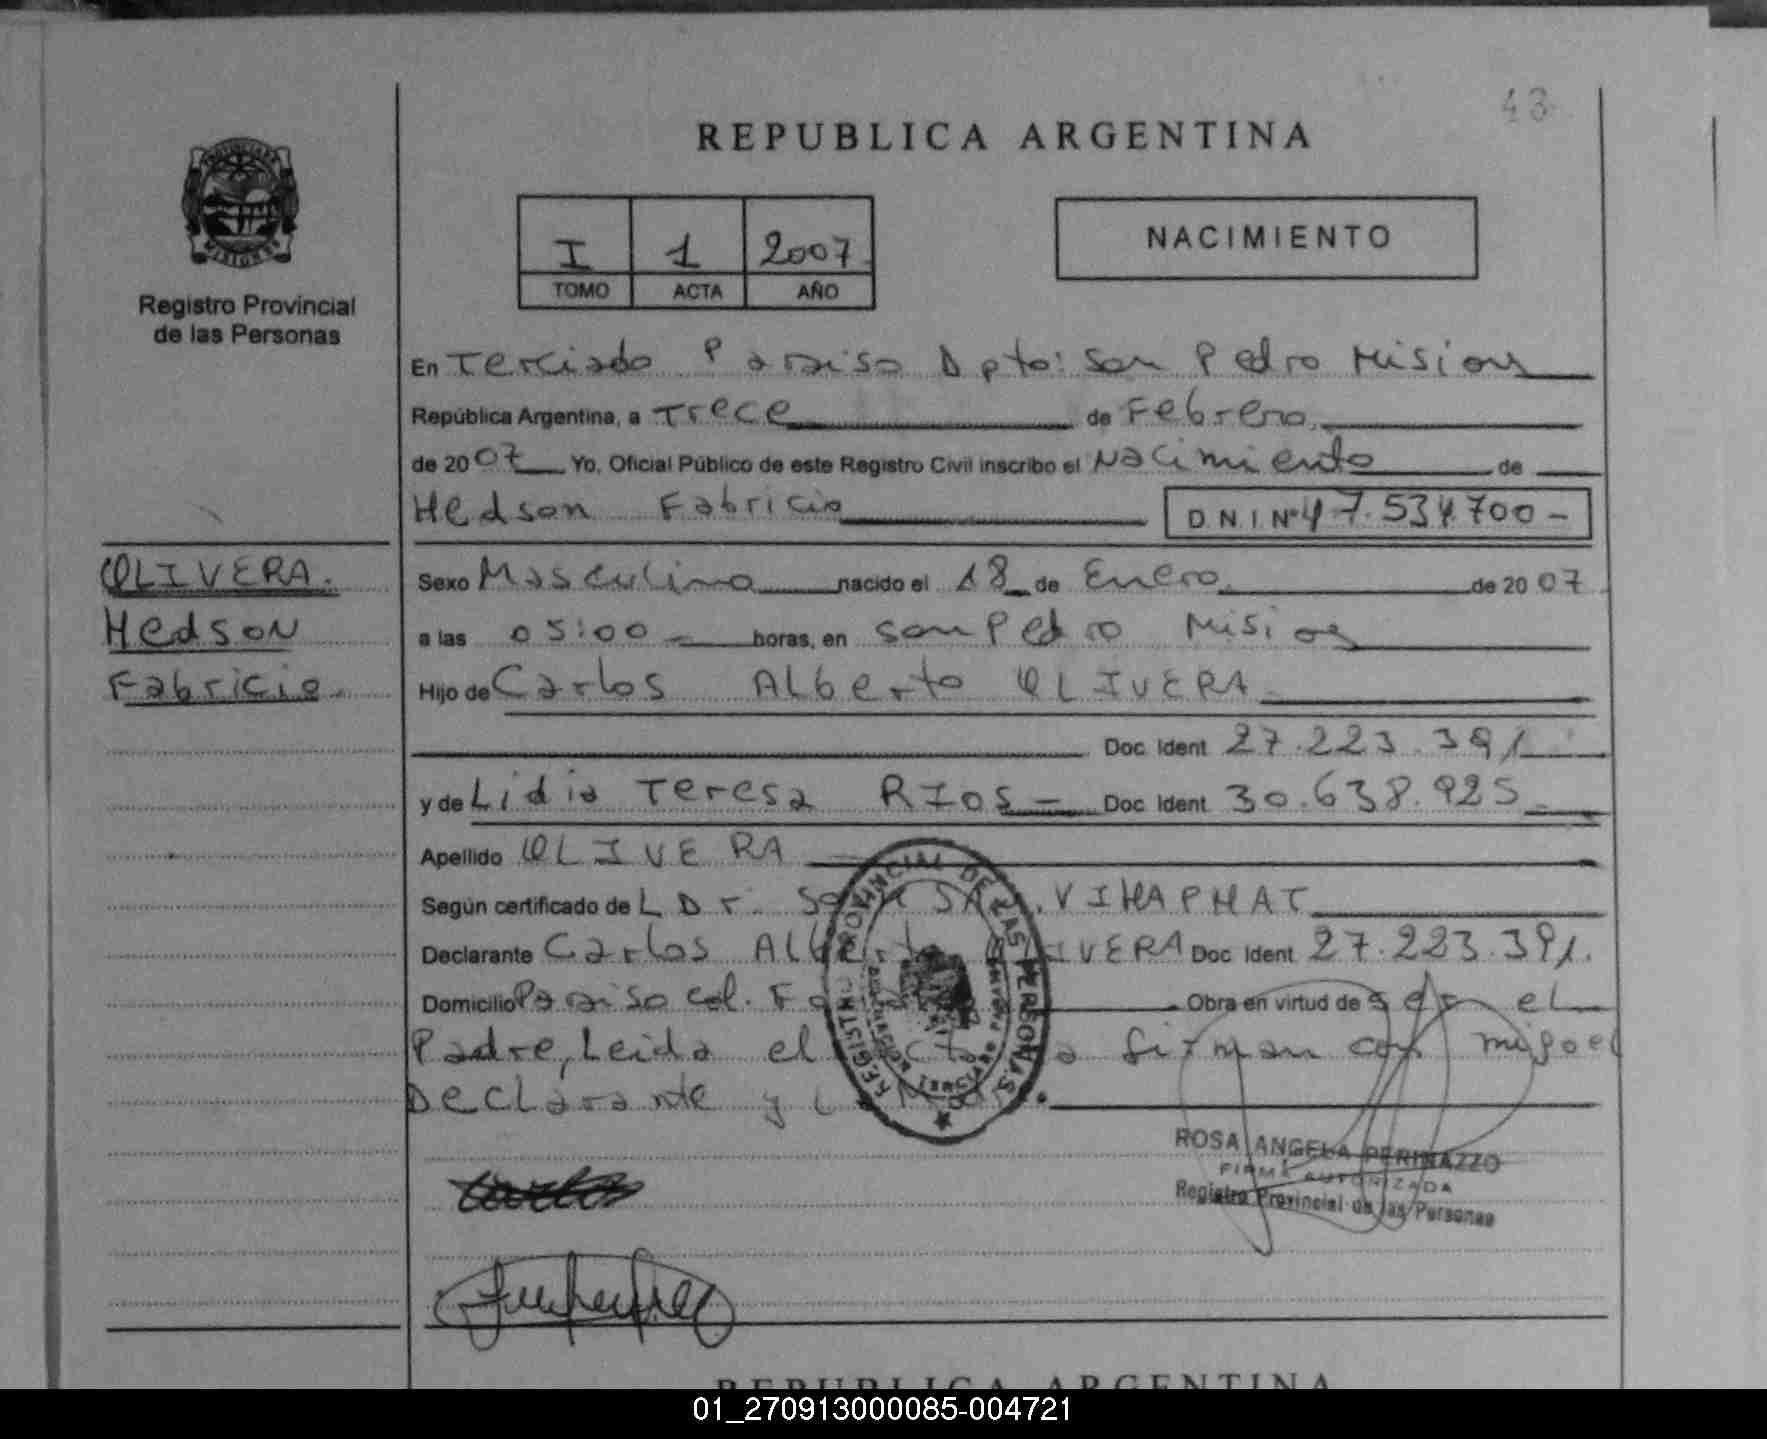 43
REPUBLICA ARGENTINA
I 1 2007
TOMO ACTA AÑO
NACIMIENTO
Registro Provincial
de las Personas
En Terciado Paraiso Dpto: San Pedro Misiones
República Argentina, a Trece de Febrero.
de 2007 Yo, Oficial Público de este Registro Civil inscribo el Nacimiento de
Hedson Fabricio D.N.I Nº 47.534.700-
OLIVERA.
Hedson
Fabricio.
Sexo Masculino nacido el 18 de Enero. de 2007
a las 05:00 horas, en San Pedro Misiones
Hijo de Carlos Alberto OLIVERA
Doc. Ident. 27.223.391
y de Lidia Teresa RIOS- Doc. Ident. 30.638.925
Apellido OLIVERA
Según certificado de L Dr.
Declarante Carlos Alberto OLIVERA Doc. Ident. 27.223.391.
Domicilio Paraiso Col. Obra en virtud de ser el
Padre, Leida el firman con migo el
Declarante y
REGISTRO PROVINCIAL DE LAS PERSONAS
ROSA ANGELA PERINAZZO
FIRMA AUTORIZADA
Registro Provincial de las Personas
REPUBLICA ARGENTINA
01_270913000085-004721